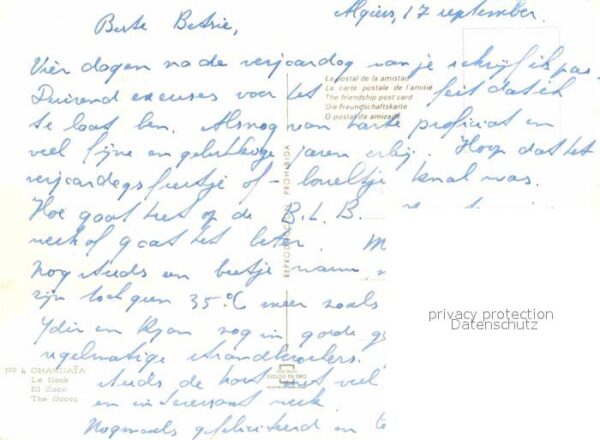 Algiers, 17 september.
Beste Betsie,
Vier dagen na de verjaardag van je schrijf ik pas.
Duizend excuses voor het feit dat ik
te laat ben. Alsnog van harte proficiat en
veel fijne en gelukkige jaren erbij. Hoop dat het
verjaardagsfeestje of - borreltje knal was.
Hoe gaat het op de B.L.B.
gaat het beter.
Nog steeds een beetje warm,
zijn toch geen 35°C meer zoals
en Ryan nog in goede
regelmatige strandbezoekers.
steeds de hort met veel
en interessant werk.
Nogmaals gefeliciteerd en
La postal de la amistad
La carte postale de l'amitié
The friendship post card
Die Freundschaftskarte
O postal da amizade
REPRODUCCION PROHIBIDA
privacy protection
Datenschutz
Nº 4 GHARDAÏA
Le Souk
El Zoco
The Socco
ESCUDO DE ORO